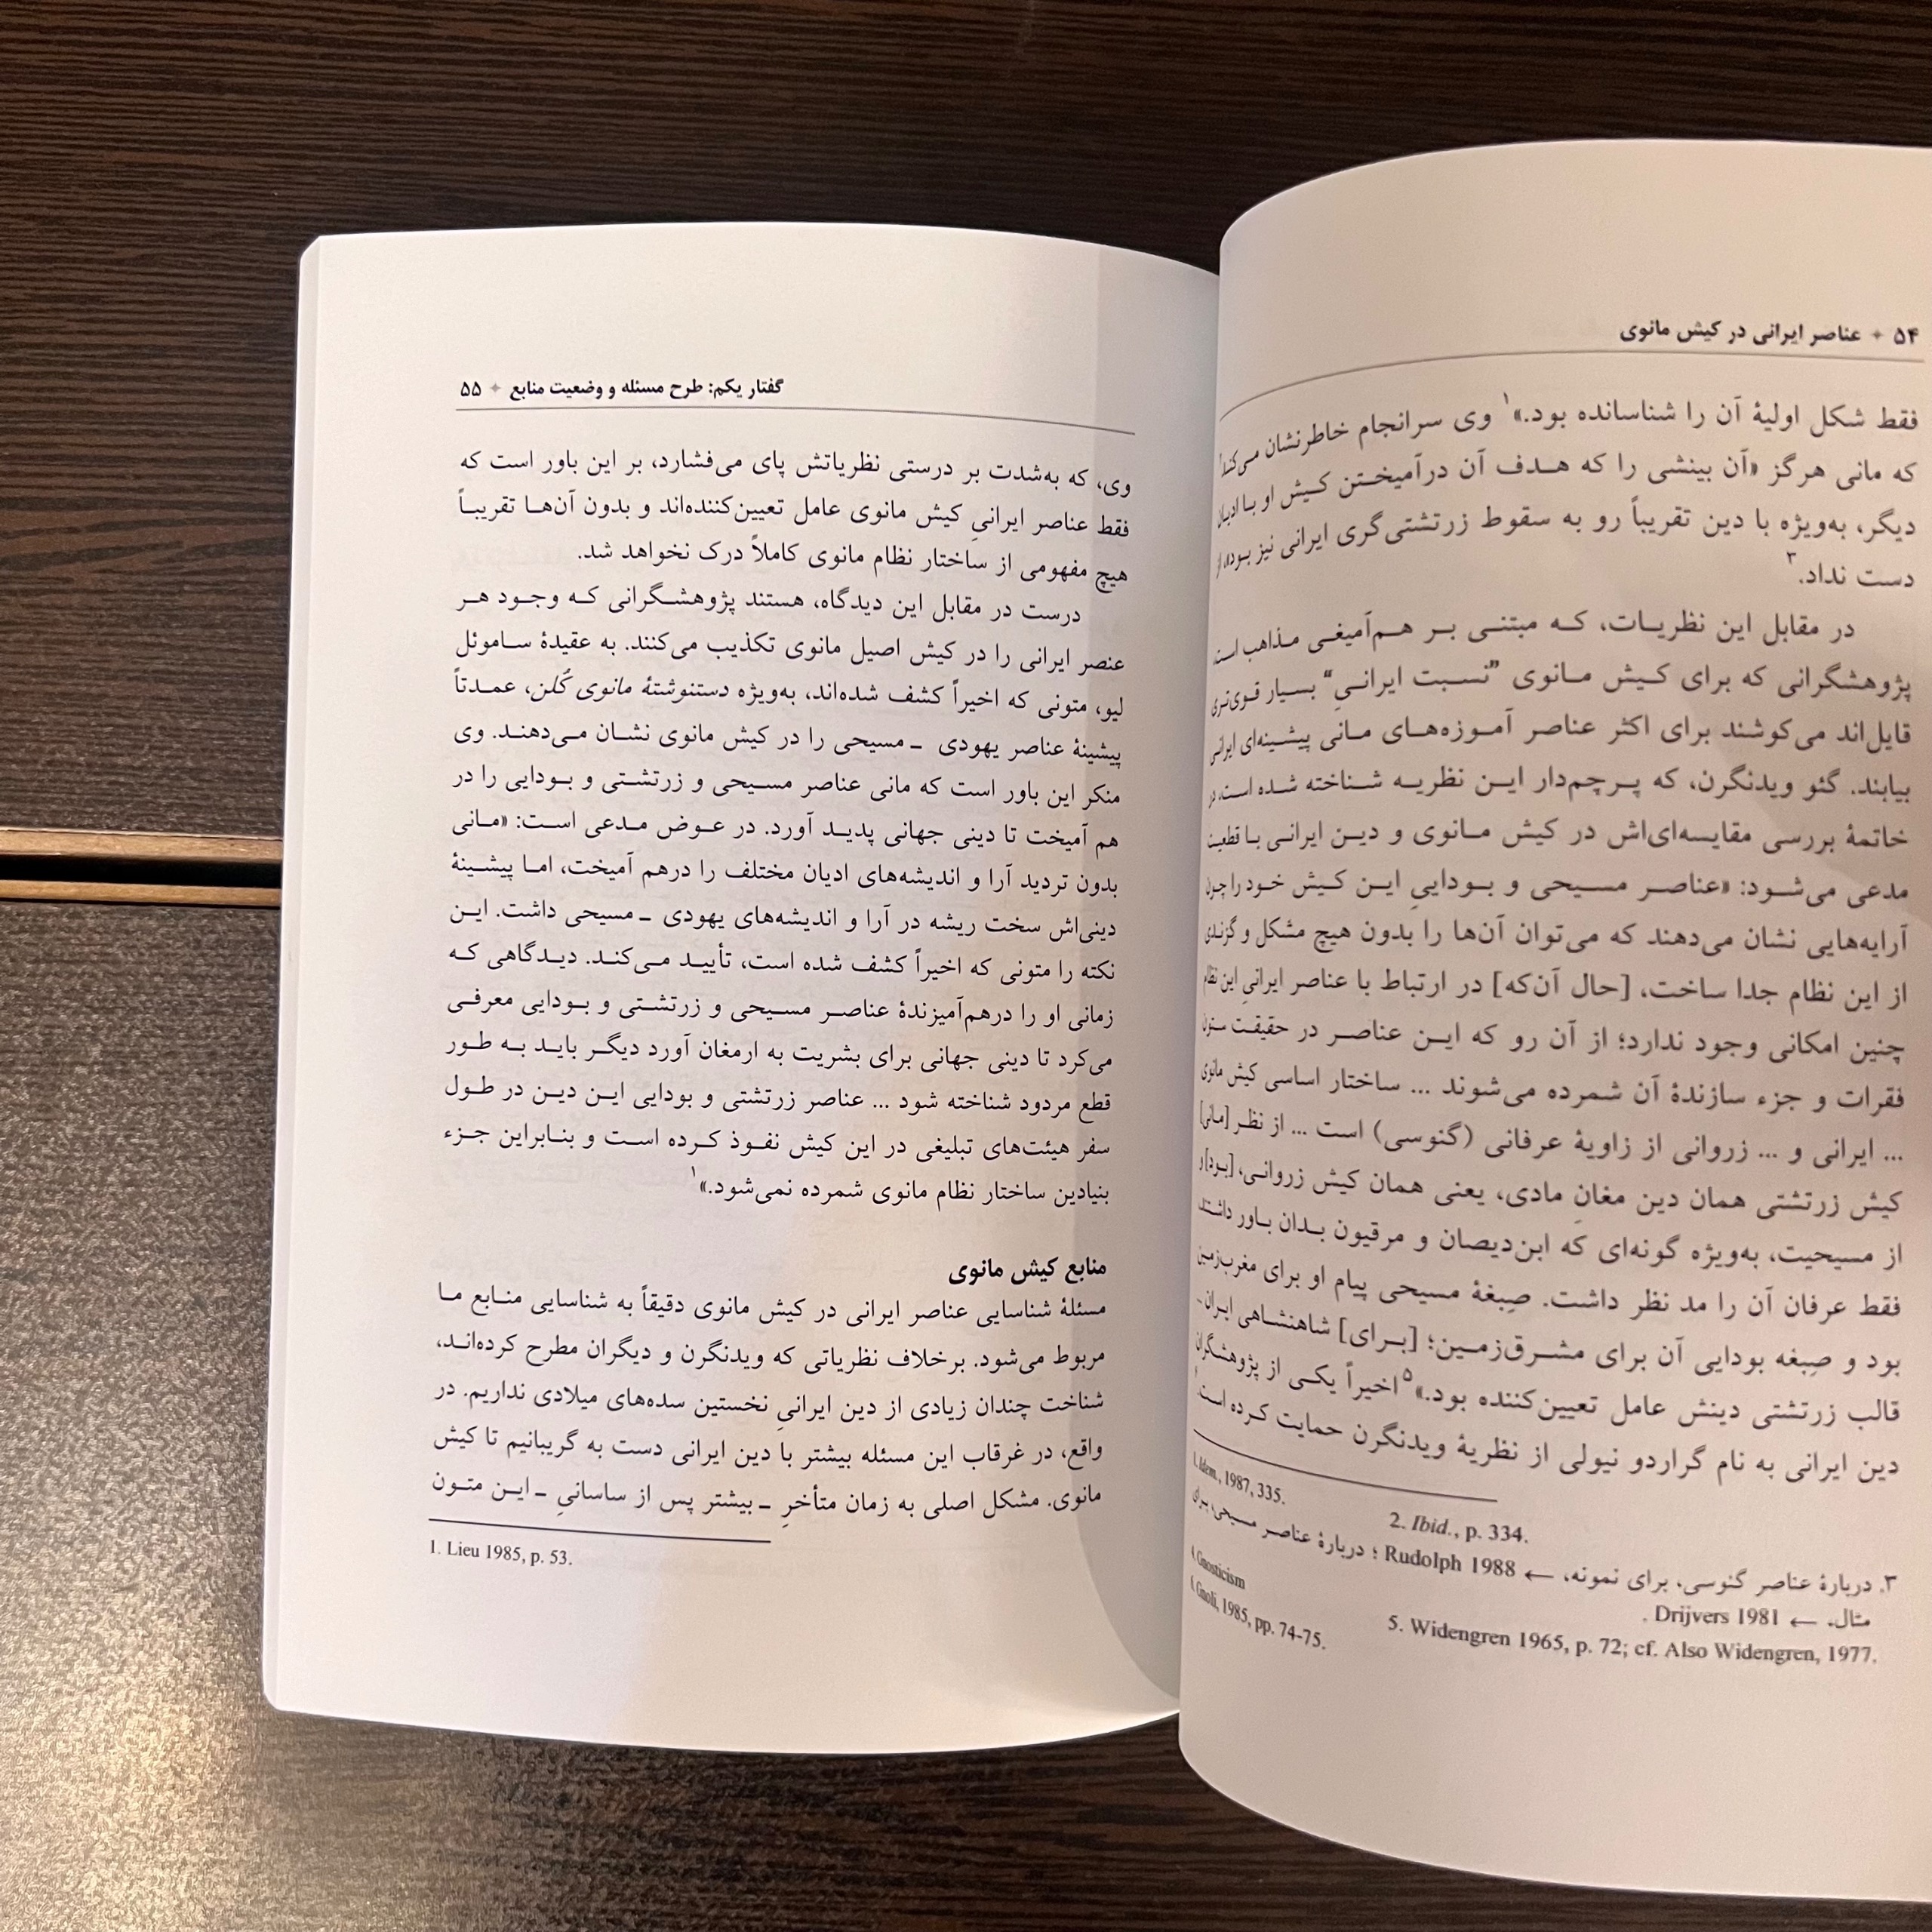 ۵۴ ✦ عناصر ایرانی در کیش مانوی
فقط شکل اولیهٔ آن را شناسانده بود.»۱ وی سرانجام خاطرنشان می‌کند
که مانی هرگز «آن بینشی را که هدف آن درآمیختن کیش او با ادیان
دیگر، به‌ویژه با دین تقریباً رو به سقوط زرتشتی‌گری ایرانی نیز بود، از
دست نداد.۳
در مقابل این نظریات، که مبتنی بر هم‌آمیغی مذاهب است،
پژوهشگرانی که برای کیش مانوی "نسبت ایرانیِ" بسیار قوی‌تری
قایل‌اند می‌کوشند برای اکثر عناصر آموزه‌های مانی پیشینه‌ای ایرانی
بیابند. گئو ویدنگرن، که پرچم‌دار این نظریه شناخته شده است، در
خاتمهٔ بررسی مقایسه‌ای‌اش در کیش مانوی و دین ایرانی با قطعیت
مدعی می‌شود: «عناصر مسیحی و بوداییِ این کیش خود را چون
آرایه‌هایی نشان می‌دهند که می‌توان آن‌ها را بدون هیچ مشکل و گزندی
از این نظام جدا ساخت، [حال آن‌که] در ارتباط با عناصر ایرانیِ این نظام
چنین امکانی وجود ندارد؛ از آن رو که این عناصر در حقیقت ستون
فقرات و جزء سازندهٔ آن شمرده می‌شوند ... ساختار اساسی کیش مانوی
... ایرانی و ... زروانی از زاویهٔ عرفانی (گنوسی) است ... از نظر [مانی]
کیش زرتشتی همان دین مغانِ مادی، یعنی همان کیش زروانی، [بود] و
از مسیحیت، به‌ویژه گونه‌ای که ابن‌دیصان و مرقیون بدان باور داشتند،
فقط عرفان آن را مد نظر داشت. صِبغهٔ مسیحی پیام او برای مغرب‌زمین
بود و صِبغه بودایی آن برای مشرق‌زمین؛ [برای] شاهنشاهی ایران ـ
قالب زرتشتی دینش عامل تعیین‌کننده بود.»۵ اخیراً یکی از پژوهشگران
دین ایرانی به نام گراردو نیولی از نظریهٔ ویدنگرن حمایت کرده است.
1. Idem., 1987, 335.
2. Ibid., p. 334.
۳. دربارهٔ عناصر گنوسی، برای نمونه، ← Rudolph 1988 ؛ دربارهٔ عناصر مسیحی، برای
مثال، ← Drijvers 1981 .
4. Gnosticism
5. Widengren 1965, p. 72; cf. Also Widengren, 1977.
Gnoli, 1985, pp. 74-75.
گفتار یکم: طرح مسئله و وضعیت منابع ✦ ۵۵
وی، که به‌شدت بر درستی نظریاتش پای می‌فشارد، بر این باور است که
فقط عناصر ایرانیِ کیش مانوی عامل تعیین‌کننده‌اند و بدون آن‌ها تقریباً
هیچ مفهومی از ساختار نظام مانوی کاملاً درک نخواهد شد.
درست در مقابل این دیدگاه، هستند پژوهشگرانی که وجود هر
عنصر ایرانی را در کیش اصیل مانوی تکذیب می‌کنند. به عقیدهٔ ساموئل
لیو، متونی که اخیراً کشف شده‌اند، به‌ویژه دستنوشتهٔ مانوی کُلن، عمدتاً
پیشینهٔ عناصر یهودی ـ مسیحی را در کیش مانوی نشان می‌دهند. وی
منکر این باور است که مانی عناصر مسیحی و زرتشتی و بودایی را در
هم آمیخت تا دینی جهانی پدید آورد. در عوض مدعی است: «مانی
بدون تردید آرا و اندیشه‌های ادیان مختلف را درهم آمیخت، اما پیشینهٔ
دینی‌اش سخت ریشه در آرا و اندیشه‌های یهودی ـ مسیحی داشت. این
نکته را متونی که اخیراً کشف شده است، تأیید می‌کند. دیدگاهی که
زمانی او را درهم‌آمیزندهٔ عناصر مسیحی و زرتشتی و بودایی معرفی
می‌کرد تا دینی جهانی برای بشریت به ارمغان آورد دیگر باید به طور
قطع مردود شناخته شود ... عناصر زرتشتی و بودایی این دین در طول
سفر هیئت‌های تبلیغی در این کیش نفوذ کرده است و بنابراین جزء
بنیادین ساختار نظام مانوی شمرده نمی‌شود.»۱
منابع کیش مانوی
مسئلهٔ شناسایی عناصر ایرانی در کیش مانوی دقیقاً به شناسایی منابع ما
مربوط می‌شود. برخلاف نظریاتی که ویدنگرن و دیگران مطرح کرده‌اند،
شناخت چندان زیادی از دین ایرانیِ نخستین سده‌های میلادی نداریم. در
واقع، در غرقاب این مسئله بیشتر با دین ایرانی دست به گریبانیم تا کیش
مانوی. مشکل اصلی به زمان متأخرِ ـ بیشتر پس از ساسانیِ ـ این متون
1. Lieu 1985, p. 53.